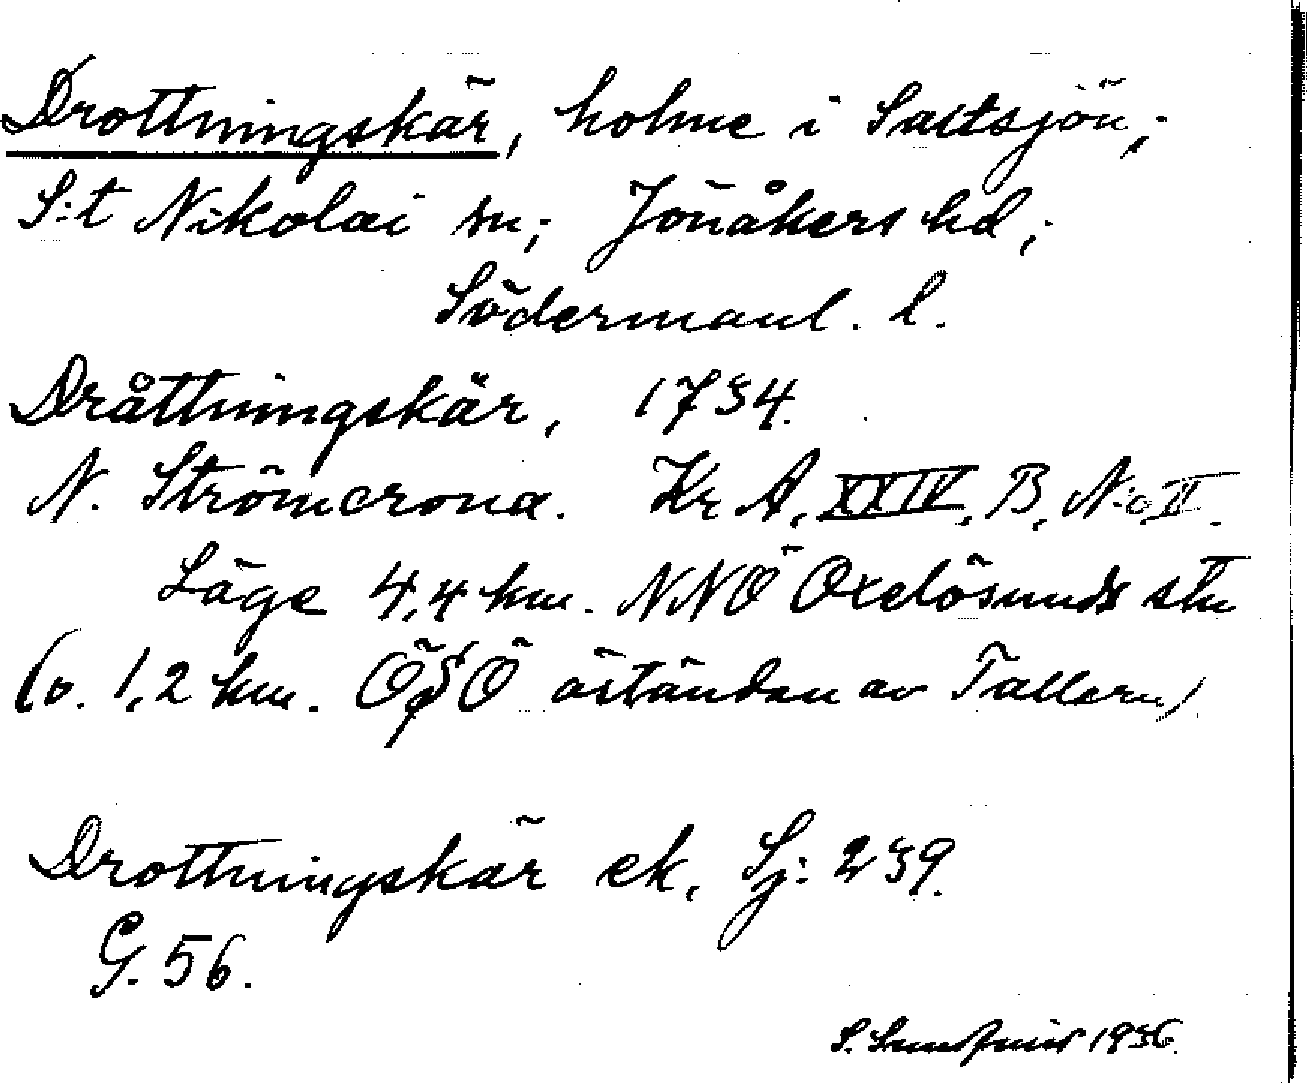 Drottningskär, holme i Saltsjön;
S:t Nikolai sn; Jönåkers hd;
Södermanl. l.
Dråttningskär, 1734.
N. Strömcrona. Kr A, XXIV, B, N:o II.
Läge 4,4 km. NNÖ Oxelösunds stn
(o. 1,2 km. ÖSÖ öständan av Tallern)
Drottningskär ek. Sj: 239.
G. 56.
S. 1936.